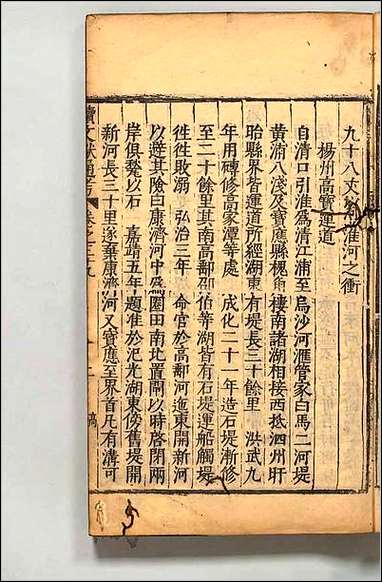 九十八丈以制淮河之衝
揚州高寶運道
自清口引淮爲清江浦至烏沙河滙管家白馬二河堤
黃浦八淺及寶應縣槐角樓南諸湖相接西抵泗州盱
眙縣界皆運道所經湖東有堤長三十餘里 洪武九
年用磚修高家潭等處 成化二十一年造石堤漸修
至二十餘里其南高郵邵伯等湖皆有石堤運船觸堤
徃徃敗溺 弘治三年 命官於高郵河迤東開新河
以避其險曰康濟河中爲圈田南北置閘以時啓閉兩
岸俱甃以石 嘉靖五年題准於氾光湖東傍舊堤開
新河長三十里遂棄康濟河又寶應至界首凡有溝可
續文獻通考 卷之三九
十二